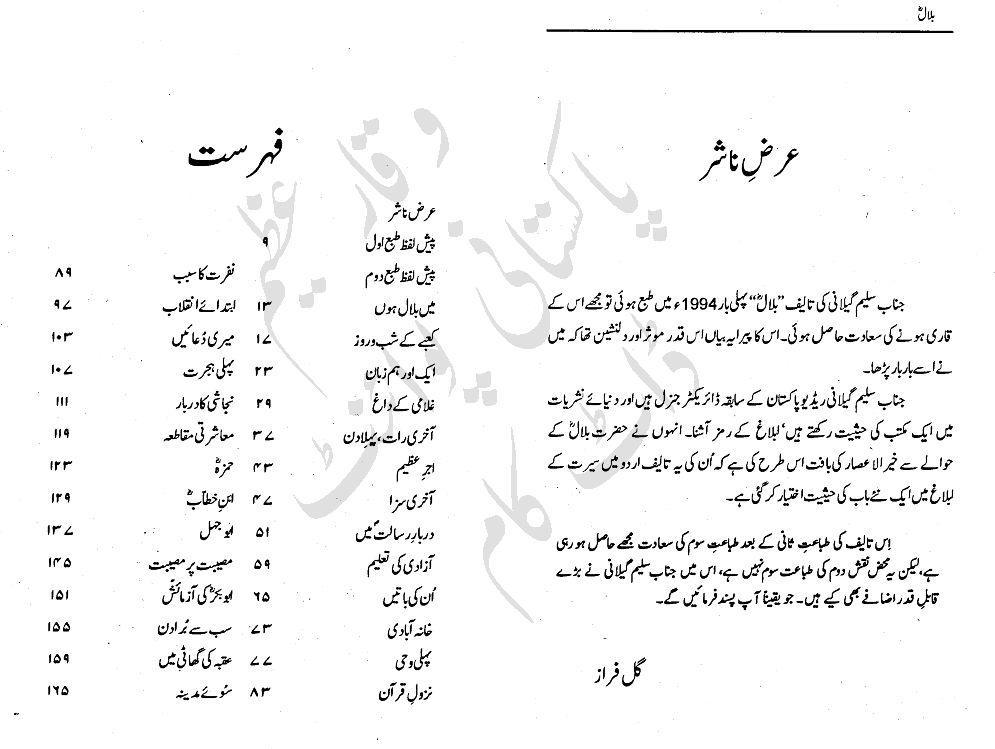 بلالؓ
عرضِ ناشر
جناب سلیم گیلانی کی تالیف ”بلالؓ“ پہلی بار 1994ء میں طبع ہوئی تو مجھے اس کے
قاری ہونے کی سعادت حاصل ہوئی۔ اس کا پیرایہ بیاں اس قدر موثر اور دلنشین تھا کہ میں
نے اسے بار بار پڑھا۔
جناب سلیم گیلانی ریڈیو پاکستان کے سابقہ ڈائریکٹر جنرل ہیں اور دنیائے نشریات
میں ایک مکتب کی حیثیت رکھتے ہیں‘ ابلاغ کے رمز آشنا۔ انہوں نے حضرت بلالؓ کے
حوالے سے خیر الاعصار کی بافت اس طرح کی ہے کہ اُن کی یہ تالیف اردو میں سیرت کے
ابلاغ میں ایک نئے باب کی حیثیت اختیار کر گئی ہے۔
اِس تالیف کی طباعتِ ثانی کے بعد طباعتِ سوم کی سعادت مجھے حاصل ہو رہی
ہے، لیکن یہ محض نقش دوم کی طباعت سوم نہیں ہے، اس میں جناب سلیم گیلانی نے بڑے
قابلِ قدر اضافے بھی کیے ہیں۔ جو یقیناً آپ پسند فرمائیں گے۔
گل فراز
فہرست
عرض ناشر
پیش لفظ طبع اول ۹
پیش لفظ طبع دوم
میں بلال ہوں ۱۳
کعبے کے شب و روز ۱۷
ایک اور ہم زبان ۲۳
غلامی کے داغ ۲۹
آخری رات، پہلا دن ۳۷
اجرِ عظیم ۴۳
آخری سزا ۴۷
دربارِ رسالتؐ میں ۵۱
آزادی کی تعلیم ۵۹
اُن کی باتیں ۶۵
خانہ آبادی ۷۳
پہلی وحی ۷۷
نزولِ قرآن ۸۳
نفرت کا سبب ۸۹
ابتدائے انقلاب ۹۷
میری دُعائیں ۱۰۳
پہلی ہجرت ۱۰۷
نجاشی کا دربار ۱۱۱
معاشرتی مقاطعہ ۱۱۹
حمزہؓ ۱۲۳
ابنِ خطابؓ ۱۲۹
ابو جہل ۱۳۷
مصیبت پر مصیبت ۱۴۵
ابو بکرؓ کی آزمائش ۱۵۱
سب سے بُرا دن ۱۵۵
عقبہ کی گھاٹی میں ۱۵۹
سُوئے مدینہ ۱۶۵
وقار عظیم
پاکستانی پوائنٹ
ڈاٹ کام